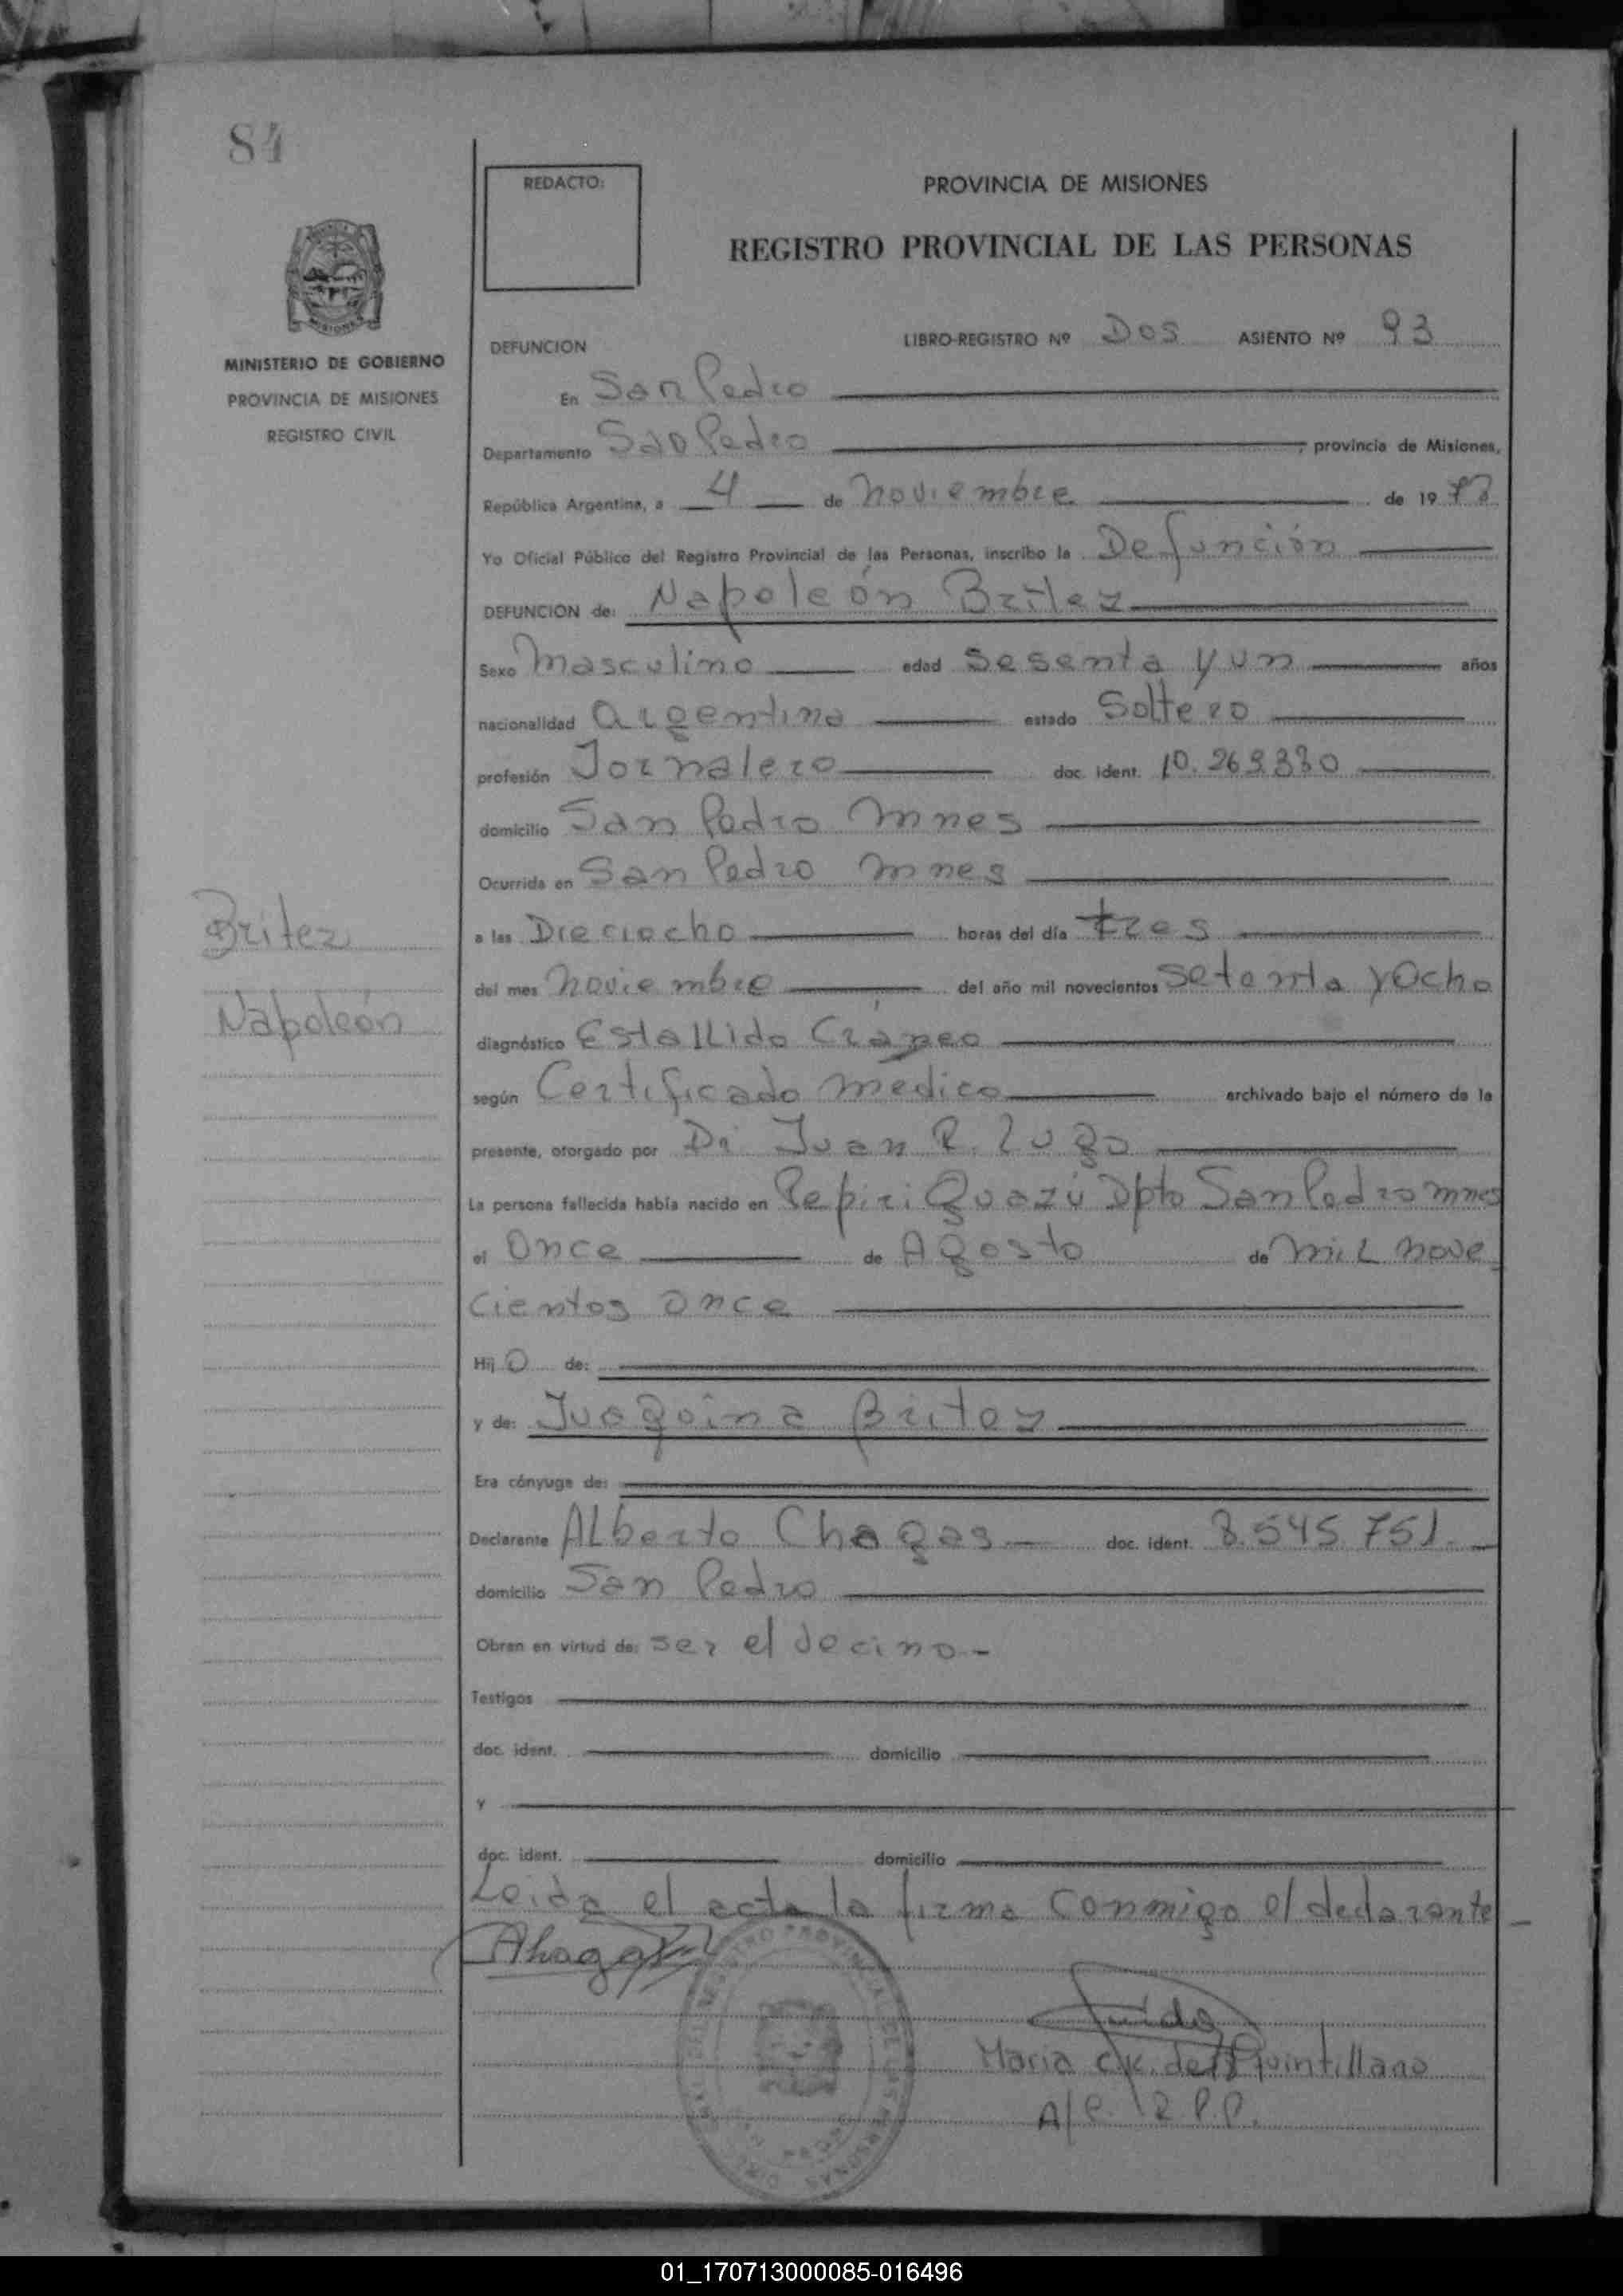 84
REDACTO:
PROVINCIA DE MISIONES
REGISTRO PROVINCIAL DE LAS PERSONAS
MINISTERIO DE GOBIERNO
PROVINCIA DE MISIONES
REGISTRO CIVIL
DEFUNCION LIBRO-REGISTRO Nº Dos ASIENTO Nº 93
En San Pedro
Departamento San Pedro, provincia de Misiones,
República Argentina, a 4 de noviembre de 1978
Yo Oficial Público del Registro Provincial de las Personas, inscribo la Defunción
DEFUNCION de: Napoleón Britez
Sexo masculino edad sesenta y un años
nacionalidad argentina estado Soltero
profesión Jornalero doc. ident. 10.269.330
domicilio San Pedro Mnes
Ocurrida en San Pedro Mnes
Britez
a las Dieciocho horas del día tres
del mes noviembre del año mil novecientos setenta y Ocho
Napoleón
diagnóstico Estallido Cráneo
según Certificado medico archivado bajo el número de la
presente, otorgado por Dr Juan R. Lugo
La persona fallecida había nacido en Pepiri Guazú Dpto San Pedro mnes
el Once de Agosto de mil nove
cientos once
Hijo de:
y de: Juaquina Britez
Era cónyuge de:
Declarante Alberto Chagas doc. ident. 8.545.751.
domicilio San Pedro
Obran en virtud de: ser el vecino -
Testigos
doc. ident. domicilio
y
doc. ident. domicilio
Leida el acta la firma conmigo el declarante
Maria C.K. de Quintillano
A/C. R.P.P.
01_170713000085-016496